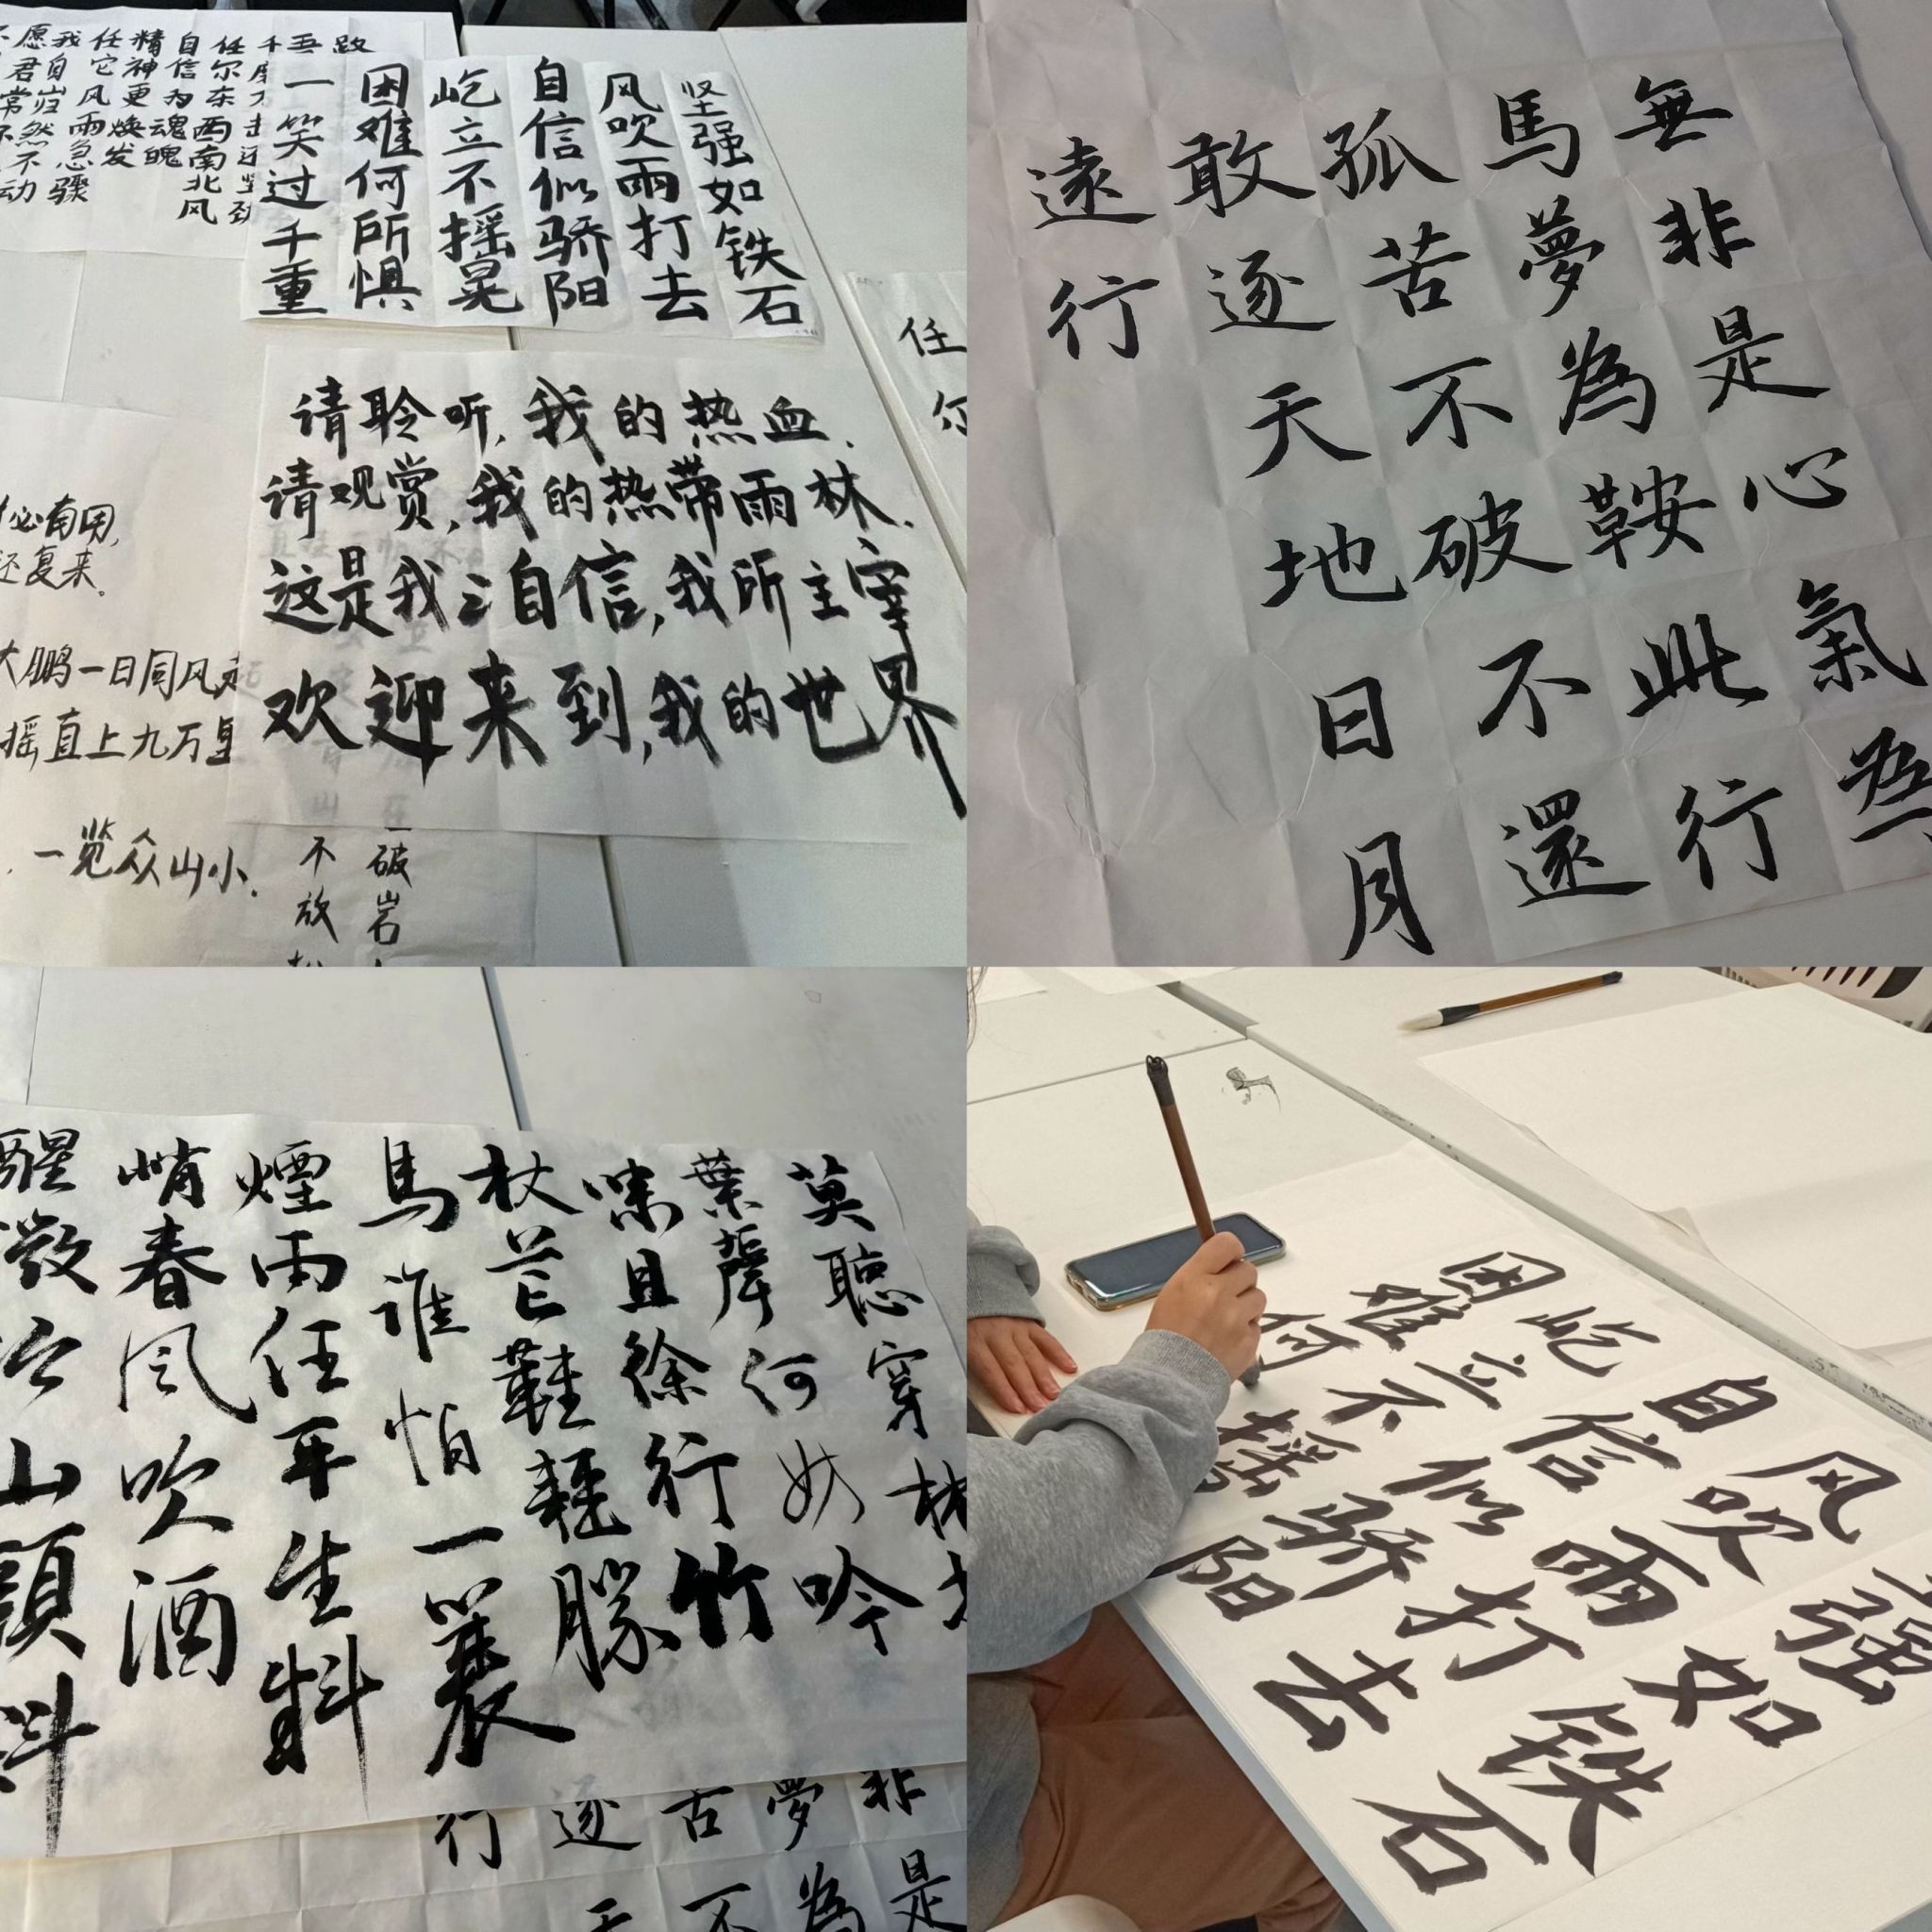 路
吾一笑过千重
任尔东西南北风
自信为魂魄
精神更焕发
任它风雨急骤
我自岿然不动
愿君常
坚强如铁石
风吹雨打去
自信似骄阳
屹立不摇晃
困难何所惧
一笑过千重
请聆听,我的热血、
请观赏,我的热带雨林、
这是我之自信,我所主宰
欢迎来到,我的世界
必有用,
还复来。
大鹏一日同风起
摇直上九万里
一览众山小.
在破岩
山不放
任尔
無非是心氣為
馬夢為鞍此行
孤苦不破不還
敢逐天地日月
遠行
莫聽穿林
葉聲何妨吟
嘯且徐行竹
杖芒鞋輕勝
馬谁怕一蓑
煙雨任平生料
峭春风吹酒
醒微冷山頭斜
非是
夢為
苦不
逐天
行
强如铁石
风吹雨打去
自信似骄阳
屹立不摇
困难何